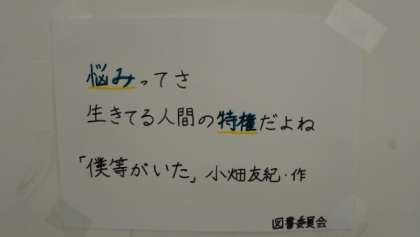 悩みってさ
生きてる人間の特権だよね
「僕等がいた」小畑友紀・作
図書委員会